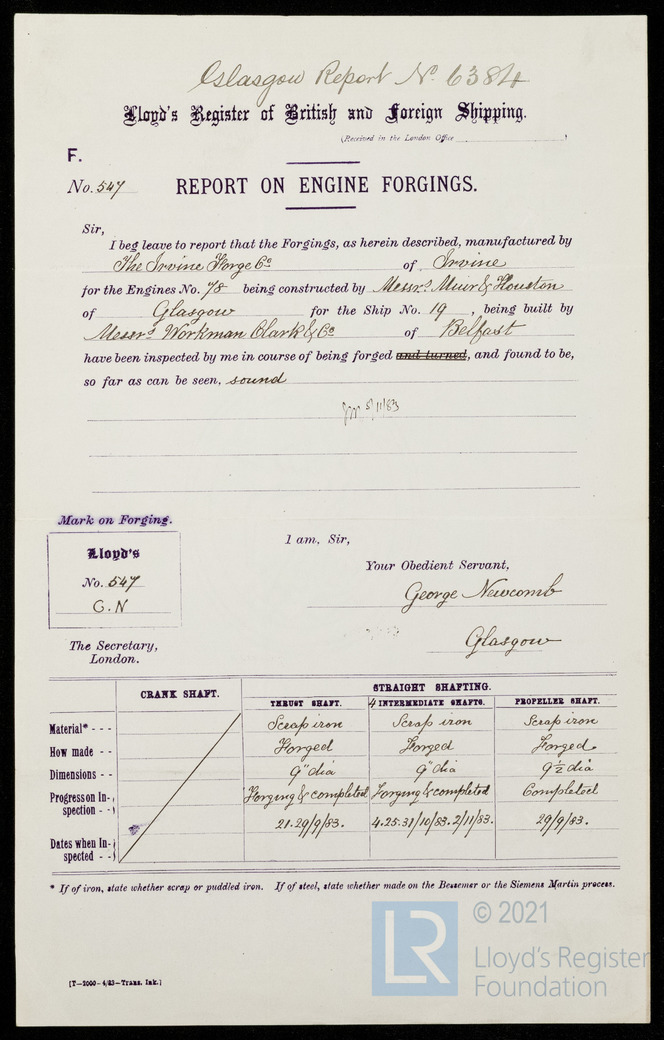 Glasgow Report No. 6384
Lloyd's Register of British and Foreign Shipping.
(Received in the London Office
F.
No. 547
REPORT ON ENGINE FORGINGS.
Sir,
I beg leave to report that the Forgings, as herein described, manufactured by
The Irvine Forge Co of Irvine
for the Engines No. 78 being constructed by Messrs Muir & Houston
of Glasgow for the Ship No. 19, being built by
Messrs Workman Clark & Co of Belfast
have been inspected by me in course of being forged and turned, and found to be,
so far as can be seen, sound
5/11/83
Mark on Forging.
Lloyd's
No. 547
G.N
I am, Sir,
Your Obedient Servant,
George Newcomb
Glasgow
The Secretary,
London.
CRANK SHAFT. STRAIGHT SHAFTING.
THRUST SHAFT. 4 INTERMEDIATE SHAFTS. PROPELLER SHAFT.
Material* - - - Scrap iron Scrap iron Scrap iron
How made - - Forged Forged Forged
Dimensions - - 9" dia 9" dia 9½ dia
Progress on In-spection - - Forging & completed Forging & completed Completed
Dates when In-spected - - 21.29/9/83. 4.25.31/10/83. 2/11/83. 29/9/83.
* If of iron, state whether scrap or puddled iron. If of steel, state whether made on the Bessemer or the Siemens Martin process.
[T—2000—4/83—Trans. Ink.]
LR
© 2021
Lloyd's Register
Foundation